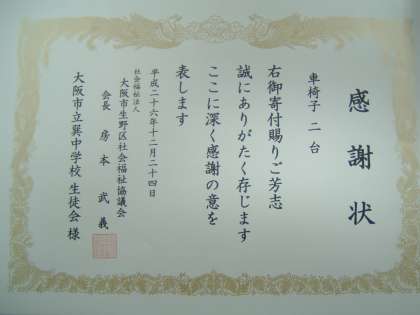 感謝状
車椅子 二台
右御寄付賜りご芳志
誠にありがたく存じます
ここに深く感謝の意を
表します
平成二十六年十二月二十四日
社会福祉法人
大阪市生野区社会福祉協議会
会長 房本武義
大阪市立巽中学校 生徒会 様